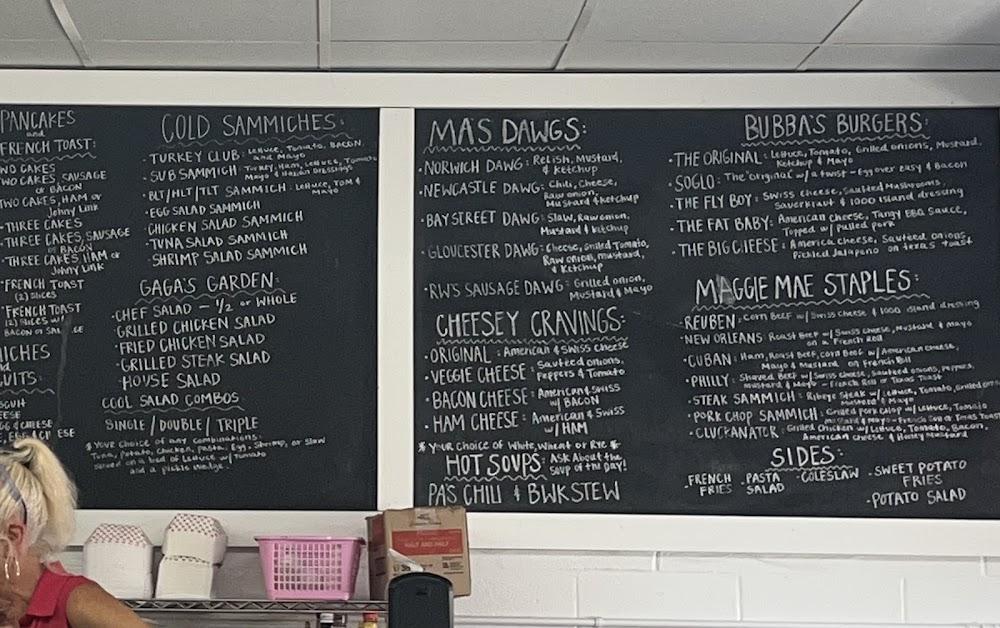 PANCAKES
and
FRENCH TOAST:
TWO CAKES
TWO CAKES, SAUSAGE
or BACON
TWO CAKES, HAM or
Johny Link
• THREE CAKES
• THREE CAKES, SAUSAGE
or BACON
• THREE CAKES, HAM or
Johny Link
• FRENCH TOAST
(2) Slices
• FRENCH TOAST
(2) Slices w/
BACON or
COLD SAMMICHES:
• TURKEY CLUB: Lettuce, Tomato, BACON,
and Mayo
• SUB SAMMICH: Turkey, Ham, Lettuce, Tomato
Mayo & Italian Dressings
• BLT/HLT/TLT SAMMICH: Lettuce, TOM &
Mayo
• EGG SALAD SAMMICH
• CHICKEN SALAD SAMMICH
• TUNA SALAD SAMMICH
• SHRIMP SALAD SAMMICH
GAGA'S GARDEN:
• CHEF SALAD - 1/2 or WHOLE
• GRILLED CHICKEN SALAD
• FRIED CHICKEN SALAD
• GRILLED STEAK SALAD
• HOUSE SALAD
COOL SALAD COMBOS:
SINGLE / DOUBLE / TRIPLE
* Your choice of any combinations:
Tuna, Potato, Chicken, Pasta, Egg, Shrimp, or Slaw
Served on a bed of Lettuce w/ Tomato
and a pickle wedge.
MA'S DAWGS:
• NORWICH DAWG: Relish, Mustard,
& Ketchup
• NEWCASTLE DAWG: Chili, Cheese,
Raw onion,
Mustard & Ketchup
• BAY STREET DAWG: Slaw, Raw onion,
Mustard & Ketchup
• GLOUCESTER DAWG: Cheese, Grilled Tomato,
Raw onion, Mustard,
& Ketchup
• RW'S SAUSAGE DAWG: Grilled onion,
Mustard & Mayo
CHEESEY CRAVINGS:
• ORIGINAL: American & SWISS Cheese
• VEGGIE CHEESE: Sautéed onions,
Peppers & Tomato
• BACON CHEESE: American & Swiss
w/ BACON
• HAM CHEESE: American & Swiss
w/ HAM
* YOUR CHOICE OF White, Wheat or Rye *
HOT SOUPS: ASK About the
SOUP OF THE DAY!
PA'S CHILI & BWK STEW
BUBBA'S BURGERS:
• THE ORIGINAL: Lettuce, Tomato, Grilled onions, Mustard,
Ketchup & Mayo
• SOGLO: The 'original' w/ a twist - Egg over easy & Bacon
• THE FLY BOY: Swiss cheese, Sautéed Mushrooms,
Sauerkraut & 1000 Island dressing
• THE FAT BABY: American cheese, Tangy BBQ Sauce,
Topped w/ pulled pork
• THE BIG CHEESE: America cheese, Sauteed onions,
Pickled Jalapeno on texas toast
MAGGIE MAE STAPLES:
• REUBEN: Corn Beef w/ Swiss Cheese & 1000 island dressing
• NEW ORLEANS: Roast Beef w/ Swiss cheese, Mustard & Mayo
on a French Roll
• CUBAN: Ham, Roast Beef, Corn Beef w/ American Cheese,
Mayo & Mustard on French Roll
• PHILLY: Shaved Beef w/ Swiss cheese, Sauteed onions, Peppers,
Mustard & Mayo - French Roll or Texas Toast
• STEAK SAMMICH: Ribeye Steak w/ Lettuce, Tomato, Grilled on
Mustard & Mayo
• PORK CHOP SAMMICH: Grilled Pork Chop w/ Lettuce, Tomato
Mustard & Mayo - French or Texas Toast
• CLUCKANATOR: Grilled Chicken w/ Lettuce, Tomato, Bacon,
American cheese & Honey Mustard
SIDES:
• FRENCH FRIES • PASTA SALAD • COLESLAW • SWEET POTATO FRIES
• POTATO SALAD
HALF AND HALF